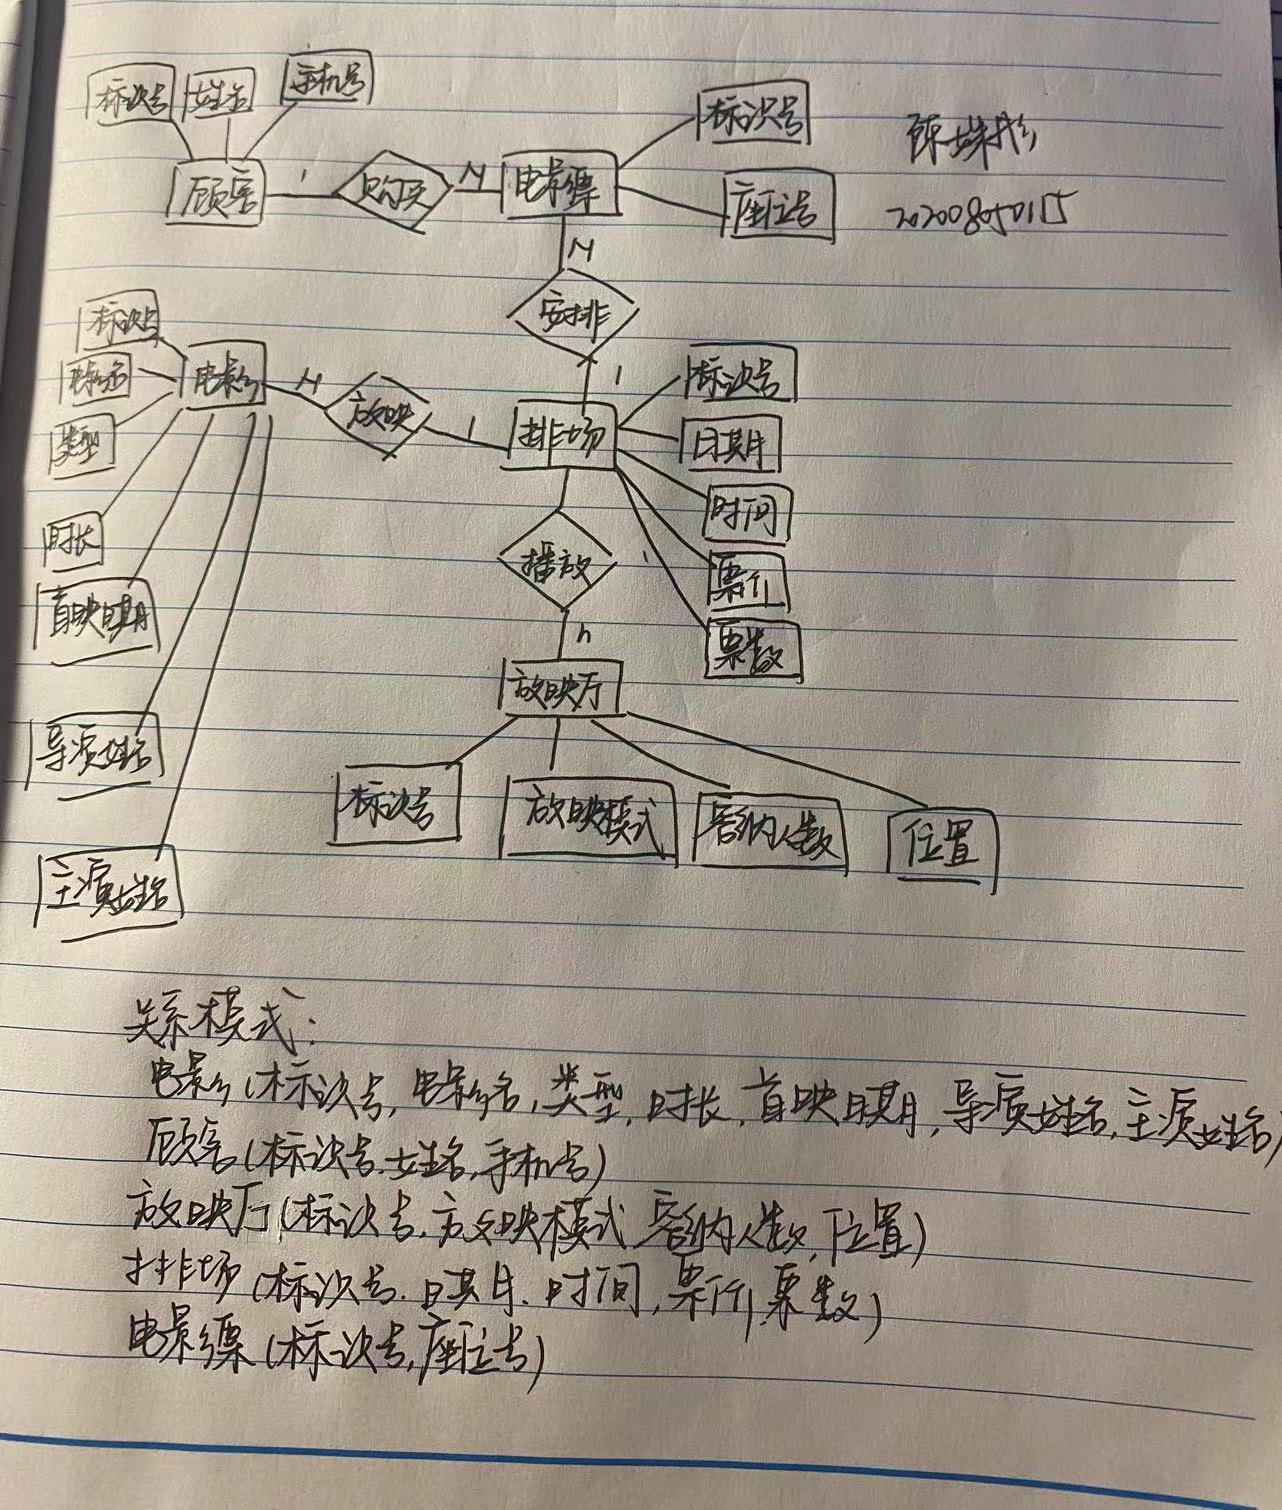 标识号
姓名
手机号
顾客
1
购买
N
电影票
标识号
座位号
20200850115
N
安排
1
标识号
电影名
类型
时长
首映日期
导演姓名
主演姓名
电影
N
放映
1
排场
标识号
日期
时间
票价
票数
播放
1
n
放映厅
标识号
放映模式
容纳人数
位置
关系模式:
电影(标识号,电影名,类型,时长,首映日期,导演姓名,主演姓名)
顾客(标识号.姓名,手机号)
放映厅(标识号,放映模式 容纳人数,位置)
排场(标识号.日期.时间,票价,票数)
电影票(标识号,座位号)